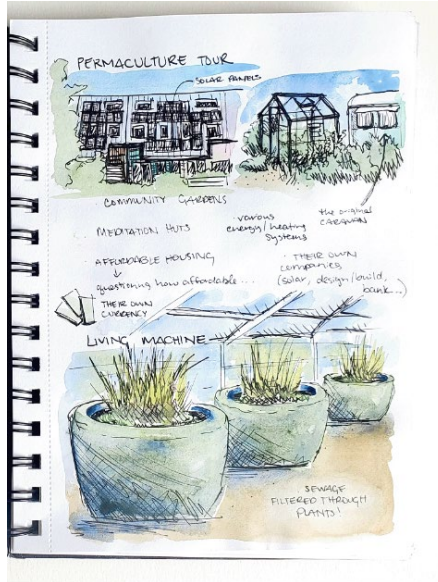 PERMACULTURE TOUR
SOLAR PANELS
COMMUNITY GARDENS
MEDITATION HUTS
various
energy/heating
systems
the original
CARAVAN
AFFORDABLE HOUSING
questioning how affordable...
THEIR OWN
companies
(solar, design/build,
bank...)
THEIR OWN
CURRENCY
LIVING MACHINE
SEWAGE
FILTERED THROUGH
PLANTS!